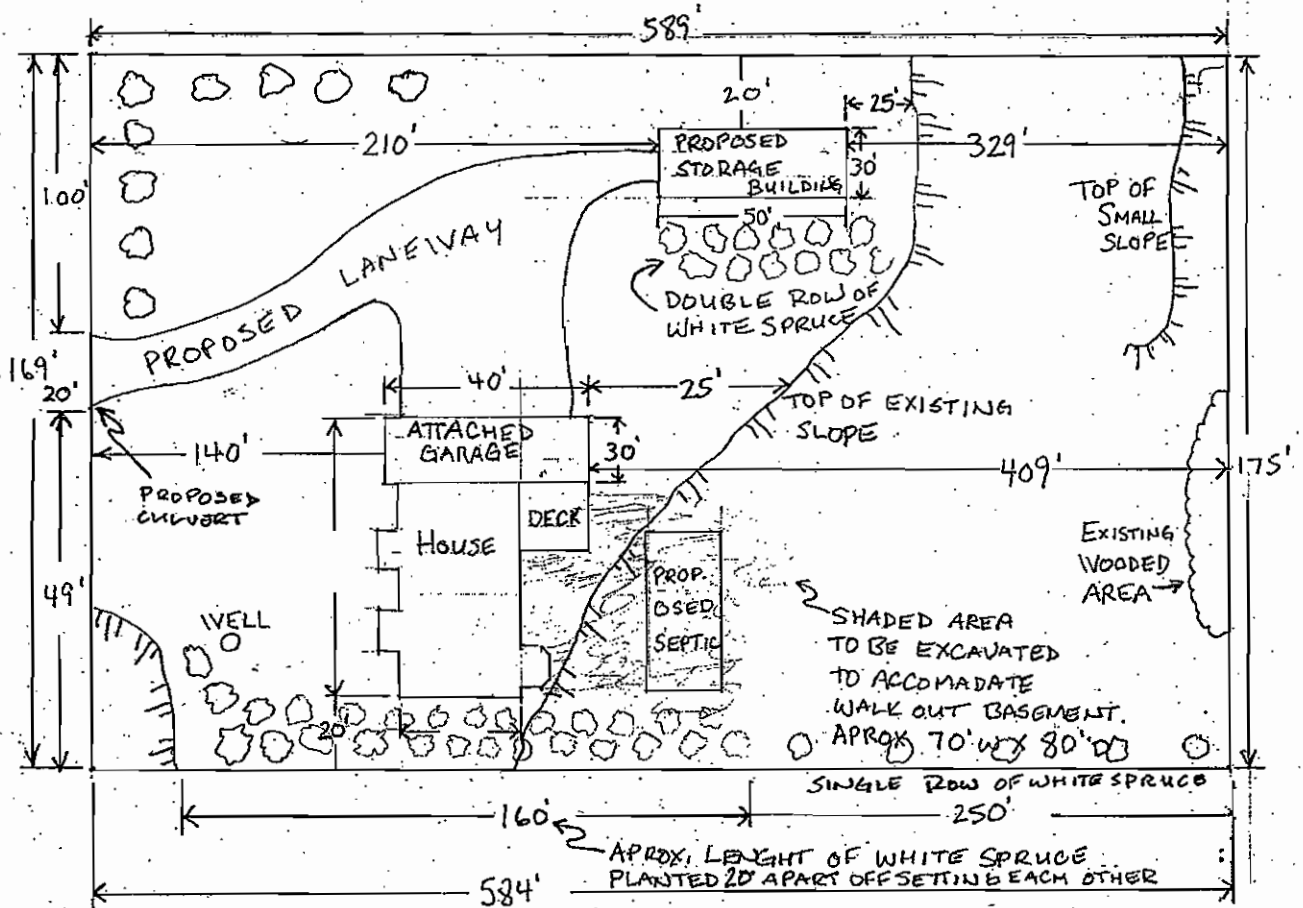 589'
20'
25'
210'
PROPOSED
STORAGE
BUILDING
30'
329'
100'
50'
TOP OF
SMALL
SLOPE
PROPOSED LANEWAY
DOUBLE ROW OF
WHITE SPRUCE
169'
20'
40'
25'
TOP OF EXISTING
SLOPE
ATTACHED
GARAGE
30'
140'
409'
175'
PROPOSED
CULVERT
DECK
HOUSE
EXISTING
WOODED
AREA
49'
PROP-
OSED
SEPTIC
WELL
SHADED AREA
TO BE EXCAVATED
TO ACCOMADATE
WALK OUT BASEMENT.
APROX 70' W X 80' D
20'
SINGLE ROW OF WHITE SPRUCE
160'
250'
APROX. LENGHT OF WHITE SPRUCE
PLANTED 20' APART OFFSETTING EACH OTHER
584'